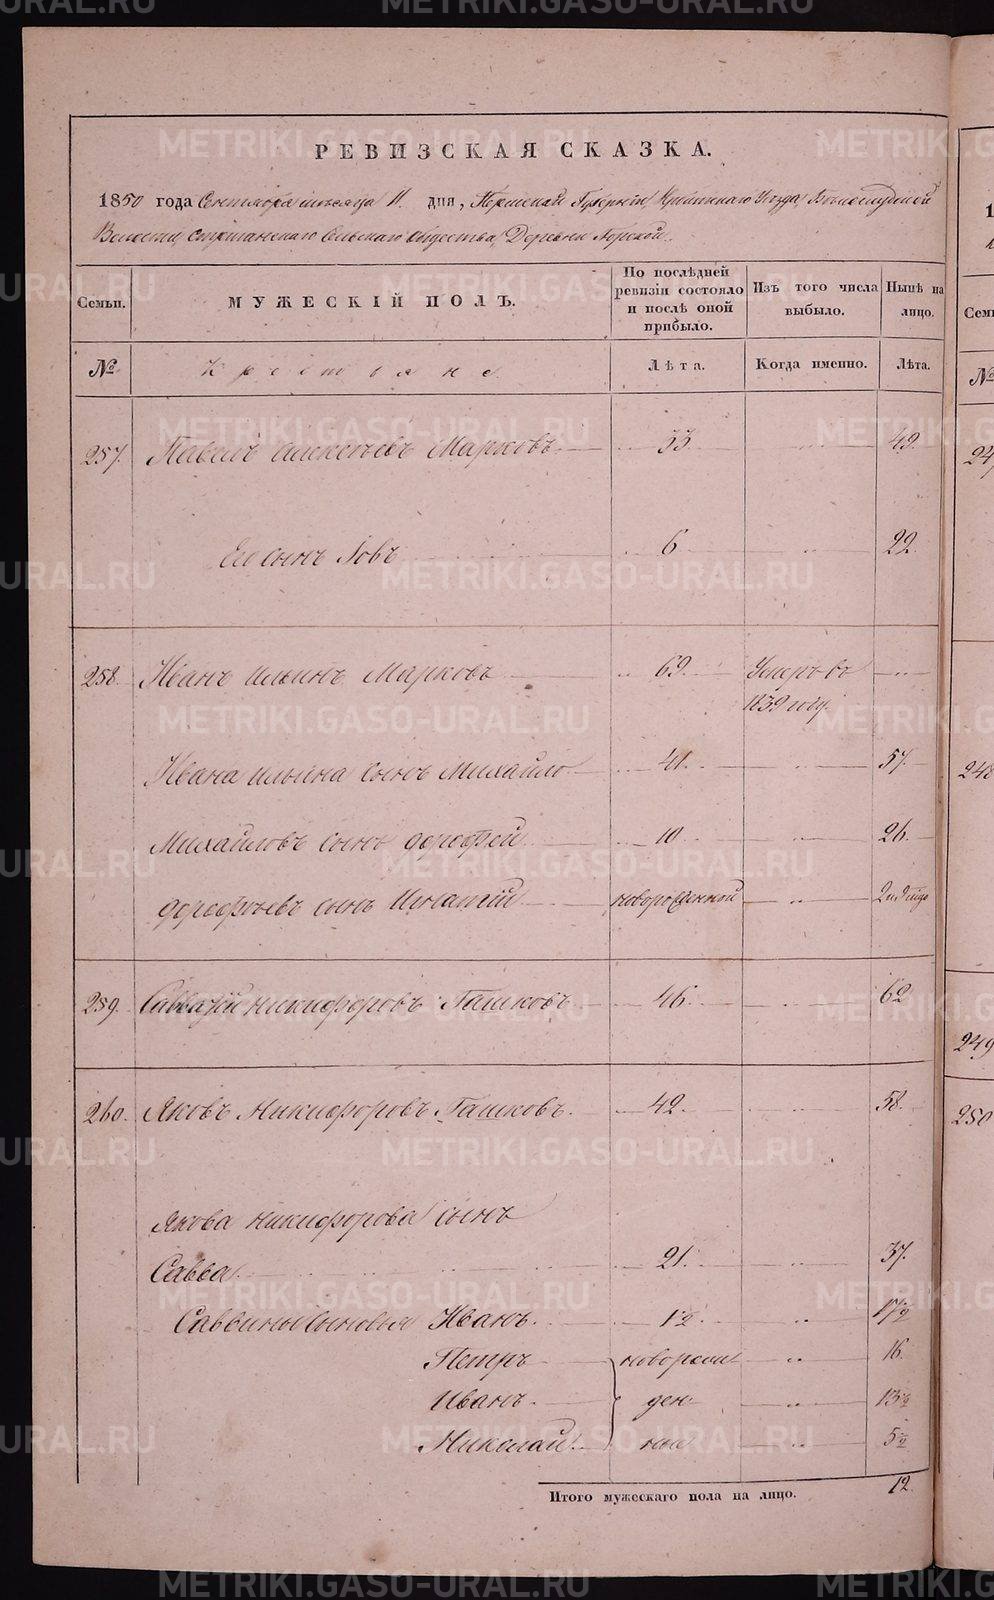 РЕВИЗСКАЯ СКАЗКА.
1850 года Сентября месяца 11 дня, Пермской Губернии, Ирбитскаго Уезда, Белослудской
Волости, Стриганскаго Сельскаго Общества, Деревни
Семьи. МУЖЕСКІЙ ПОЛЪ. По послѣдней ревизіи состояло и послѣ оной прибыло. Изъ того числа выбыло. Нынѣ на лицо.
№ Крестьяне Лѣта. Когда именно. Лѣта.
257. Павелъ Алексѣевъ Марковъ 33 " 49
Его сынъ Іовъ 6 " 22.
258. Иванъ Ильинъ Марковъ 69 Умеръ въ "
1839 году.
Ивана Ильина сынъ Михайло 41. " 57.
Михайловъ сынъ Дорофей 10 " 26.
Дорофѣевъ сынъ Игнатій новорожденной "
259. Савватій Никифоровъ Гашковъ 46. " 62
260. Яковъ Никифоровъ Гашковъ. 42. " 58.
Якова Никифорова сынъ
Савва 21. " 37.
Саввины сыновья Иванъ. 1½. " 17½
Петръ новорож " 16.
Иванъ. ден " 13½
Николай ные " 5½
Итого мужескаго пола на лицо. 12.
1
Сем
№
247
248
249
250
METRIKI.GASO-URAL.RU